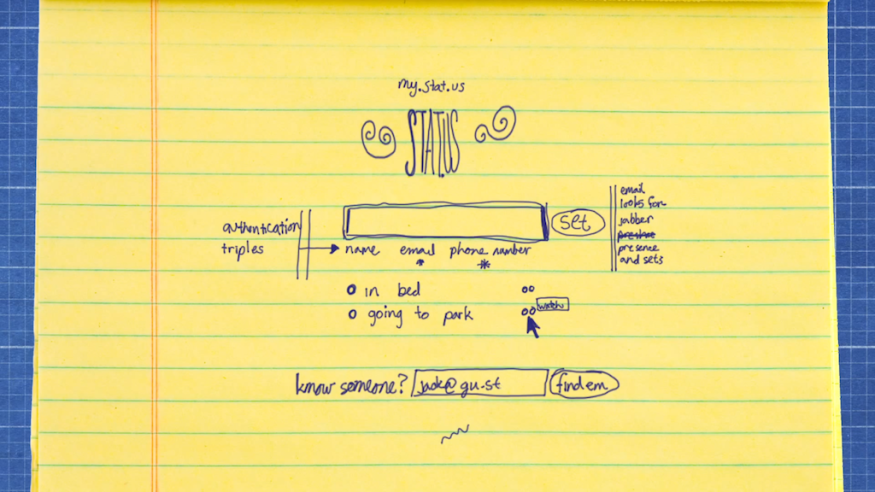 my.stat.us
STAT.US
set
authentication
triples
name email phone number
* *
email
looks for
jabber
presence
presence
and sets
in bed
going to park
watch
know someone? jack@gu.st find em